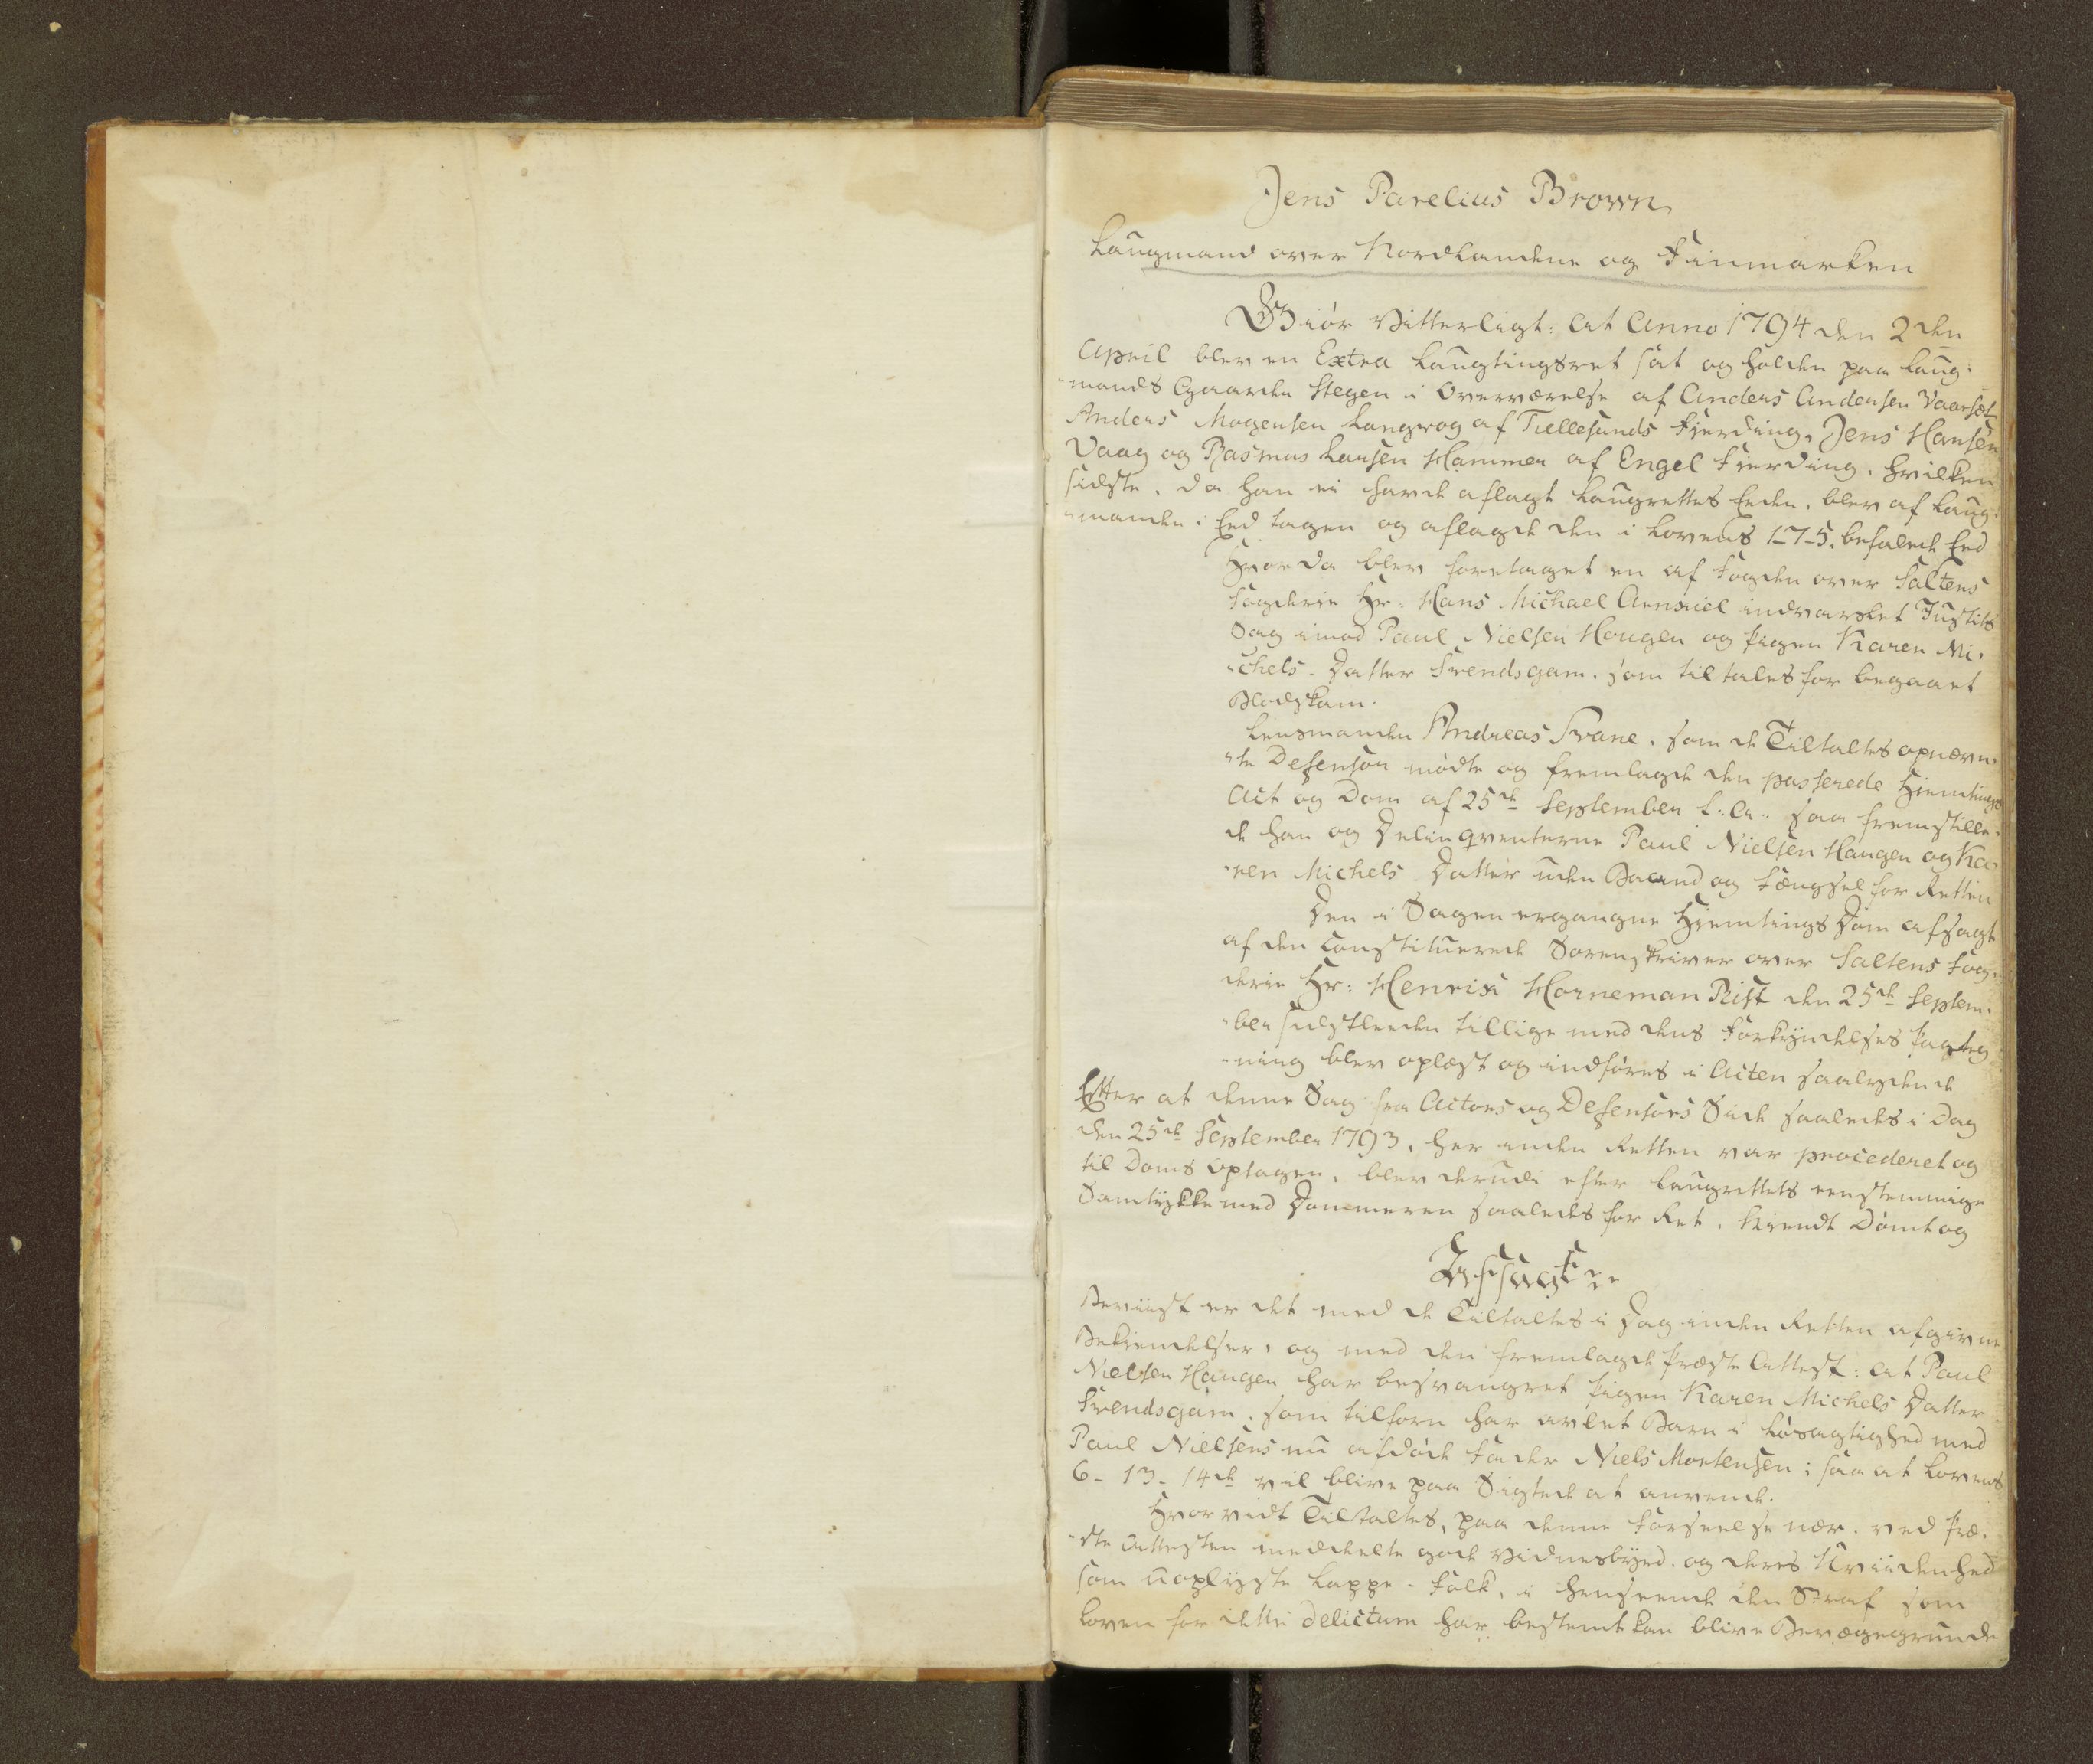 Jens Parelius Brown
Laugmand over Nordlandene og Finmarken
Giör Vitterligt: At Anno 1794 den 2den
April blev en Extra Laugtingsret sat og holden paa Laug-
-mands Gaarden Stegen i Overværelse af Anders Andersen Vaarset
Anders Mogensen Langvog af Tiellesunds Fierding, Jens Hansen
Vaag og Rasmus Larsen Hammer af Engel Fierding. hvilken
sidste, da han ei havde aflagt Laugrettes Eeden, blev af Laug-
-manden i Eed tagen og aflagde den i Lovens 1-7-5. befalede Eed
Hvorda blev foretaget en af Fogden over Saltens
Fogderie Hr: Hans Michael Ahnsiel indvarslet Justits
Sag imod Paul Nielsen Hougen og Pigen Karen Mi-
-chels-Datter Svendsgam, som tiltales for begaaet
Blodskam.
Lensmanden Andreas Svane, som de Tiltaltes opnævn-
-te Defensor mödte og fremlagde den passerede Hiemtings
Act og Dom af 25de September f: A: saa fremstille-
de han og Delinqventerne Paul Nielsen Haugen og Ka-
-ren Michels Datter uden Baand og Fængsel for Retten
Den i Sagen ergangne Hiemtings Dom afsagt
af den Constituerede Sorenskriver over Saltens Fog-
derie Hr: Henrik Horneman Rist den 25de Septem-
-ber sidstleeden tillige med dens Forkyndelses Paateg
-ning blev oplæst og indföres i Acten saalydende
Efter at denne Sag fra Actors og Defensors Side saaledes i Dag
den 25de September 1793, her inden Retten var procederet og
til Doms optagen, blev derudi efter Laugrettets eenstemmige
Samtykke med Dommeren saaledes for Ret, kiendt Dömt og
Afsagt
Beviist er det med de Tiltaltes i Dag inden Retten afgivne
Bekiendelser, og med den fremlagde Præste Attest: at Paul
Nielsen Haugen har besvangret Pigen Karen Michels Datter
Svendsgam, som tilforn har avlet Barn i Lösagtighed med
Paul Nielsens nu afdöde Fader Niels Mortensen; saa at Lovens
6-13-14de vil blive paa Sigtede at anvende.
Hvorvidt Tiltaltes, paa denne Forseelse nær, ved Præ-
-ste Attesten meddeelte gode Vidnesbyrd, og deres Uviidenhed
som uoplyste Lappe-Folk, i Henseende den Straf som
Loven for dette Delictum har bestemt kan blive Bevægegrunde